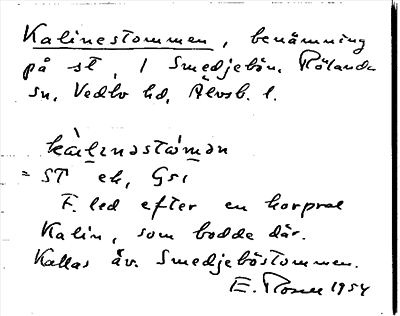 Kalinestommen, benämning
på st, i Smedjebön. Rölanda
sn, Vedbo hd, Älvsb. l.
kàlınəstómən
= ST ek, Gsı
F. led efter en korpral
Kalin, som bodde där.
Kallas äv. Smedjeböstommen.
E. Rosell 1954